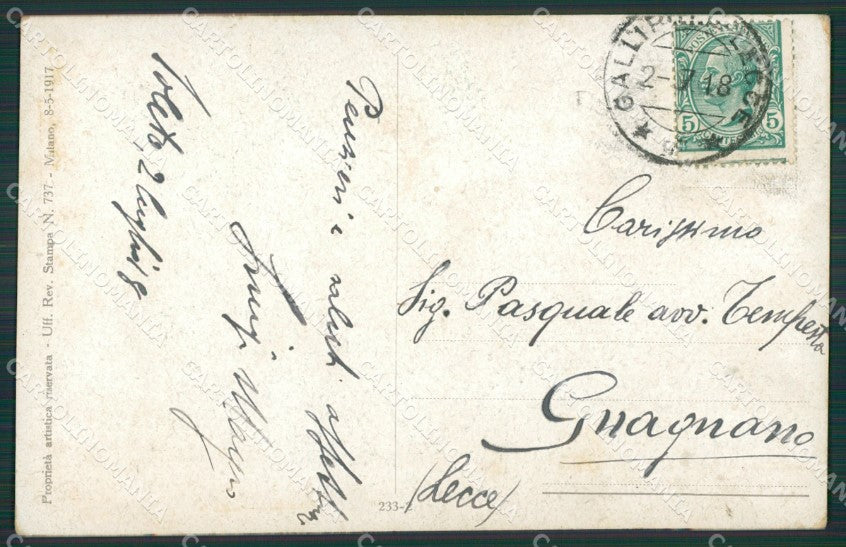 Proprietà artistica riservata - Uff. Rev. Stampa N. 737 - Milano, 8-5-1917
2 luglio 18
Pensieri e saluti
Luigi
233-2
GALLIPOLI LECCE
2-7 18
POSTE
5 5
Carissimo
Sig. Pasquale avv. Tempesta
Guagnano
(Lecce)
CARTOLINOMANIA